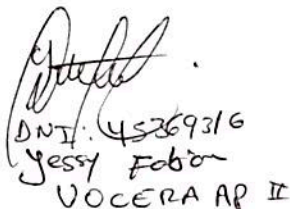 DNI: 45369316
Jessy Fabian
VOCERA AP II